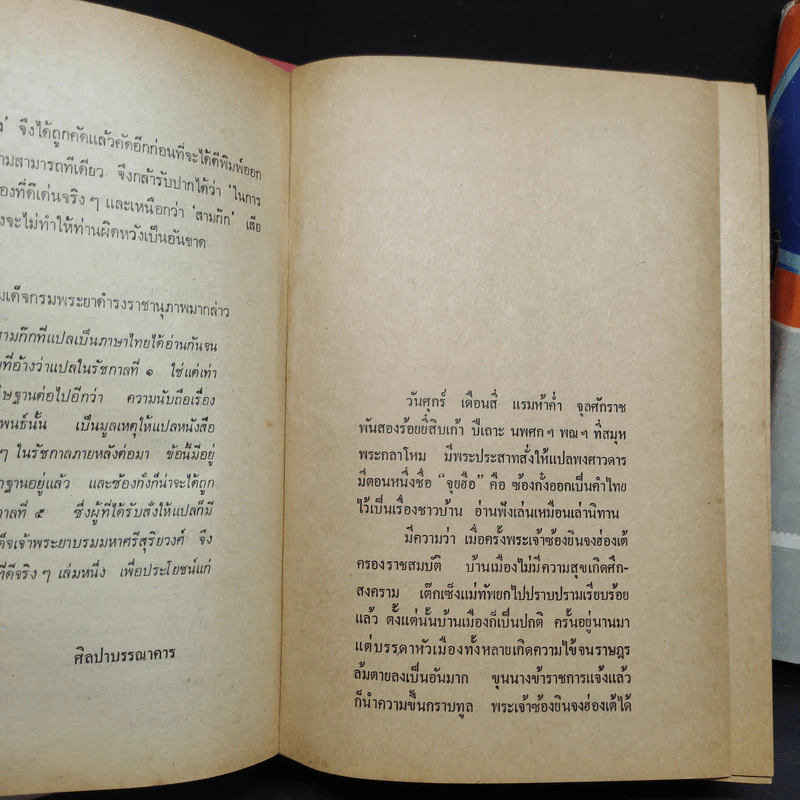 จึงได้ถูกคัดแล้วคัดอีกก่อนที่จะได้ตีพิมพ์ออก
ามสามารถทีเดียว จึงกล้ารับปากได้ว่า 'ในการ
องที่ดีเด่นจริง ๆ และเหนือกว่า 'สามก๊ก' เสีย
งจะไม่ทำให้ท่านผิดหวังเป็นอันขาด
มเด็จกรมพระยาดำรงราชานุภาพมากล่าว
สามก๊กที่แปลเป็นภาษาไทยได้อ่านกันจน
ยที่อ้างว่าแปลในรัชกาลที่ ๑ ใช่แต่เท่า
ษฐานต่อไปอีกว่า ความนับถือเรื่อง
พนธ์นั้น เป็นมูลเหตุให้แปลหนังสือ
ๆ ในรัชกาลภายหลังต่อมา ข้อนี้มีอยู่
กฐานอยู่แล้ว และซ้องกั๋งก็น่าจะได้ถูก
กาลที่ ๕ ซึ่งผู้ที่ได้รับสั่งให้แปลก็มี
ด็จเจ้าพระยาบรมมหาศรีสุริยวงศ์ จึง
ที่ดีจริง ๆ เล่มหนึ่ง เพื่อประโยชน์แก่
ศิลปาบรรณาคาร
วันศุกร์ เดือนสี่ แรมห้าค่ำ จุลศักราช
พันสองร้อยยี่สิบเก้า ปีเถาะ นพศกฯ พณฯ ที่สมุห
พระกลาโหม มีพระประสาทสั่งให้แปลพงศาวดาร
มีตอนหนึ่งชื่อ "จุยฮือ" คือ ซ้องกั๋งออกเป็นคำไทย
ไว้เป็นเรื่องชาวบ้าน อ่านฟังเล่นเหมือนเล่านิทาน
มีความว่า เมื่อครั้งพระเจ้าซ้องยินจงฮ่องเต้
ครองราชสมบัติ บ้านเมืองไม่มีความสุขเกิดศึก-
สงคราม เต๊กเซ็งแม่ทัพยกไปปราบปรามเรียบร้อย
แล้ว ตั้งแต่นั้นบ้านเมืองก็เป็นปกติ ครั้นอยู่นานมา
แต่บรรดาหัวเมืองทั้งหลายเกิดความไข้จนราษฎร
ล้มตายลงเป็นอันมาก ขุนนางข้าราชการแจ้งแล้ว
ก็นำความขึ้นกราบทูล พระเจ้าซ้องยินจงฮ่องเต้ได้